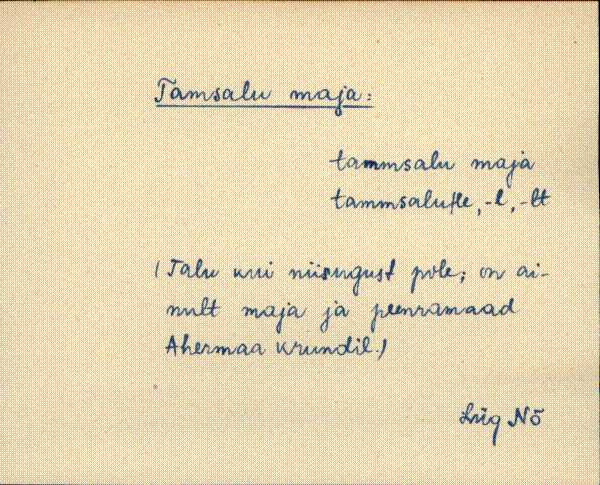 Tamsalu maja:
tammsalu maja
tammsalu/le, -l, -lt
(Talu kui niisugust pole; on ai-
nult maja ja peenramaad
Ahermaa krundil.)
Lüg Nõ